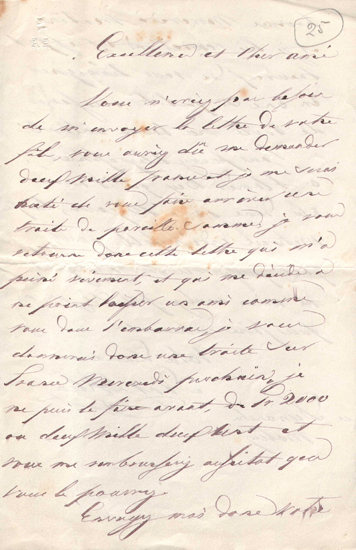 25
Excellence et cher ami
Vous n'aviez pas besoin
de m'envoyer la lettre de votre
fils, vous auriez dû me demander
deux mille francs et je me serais
hâté de vous faire arriver une
traite de pareille somme, je vous
retourne donc cette lettre qui m'a
peiné vivement, et qui me décide à
ne point laisser un ami comme
vous dans l'embarras, je vous
donnerai donc une traite sur
France Mercredi prochain, je
ne puis le faire avant, de Fr 2000
ou deux mille deux cent et
vous me rembourserez aussitôt que
vous le pourrez
Envoyez moi donc votre